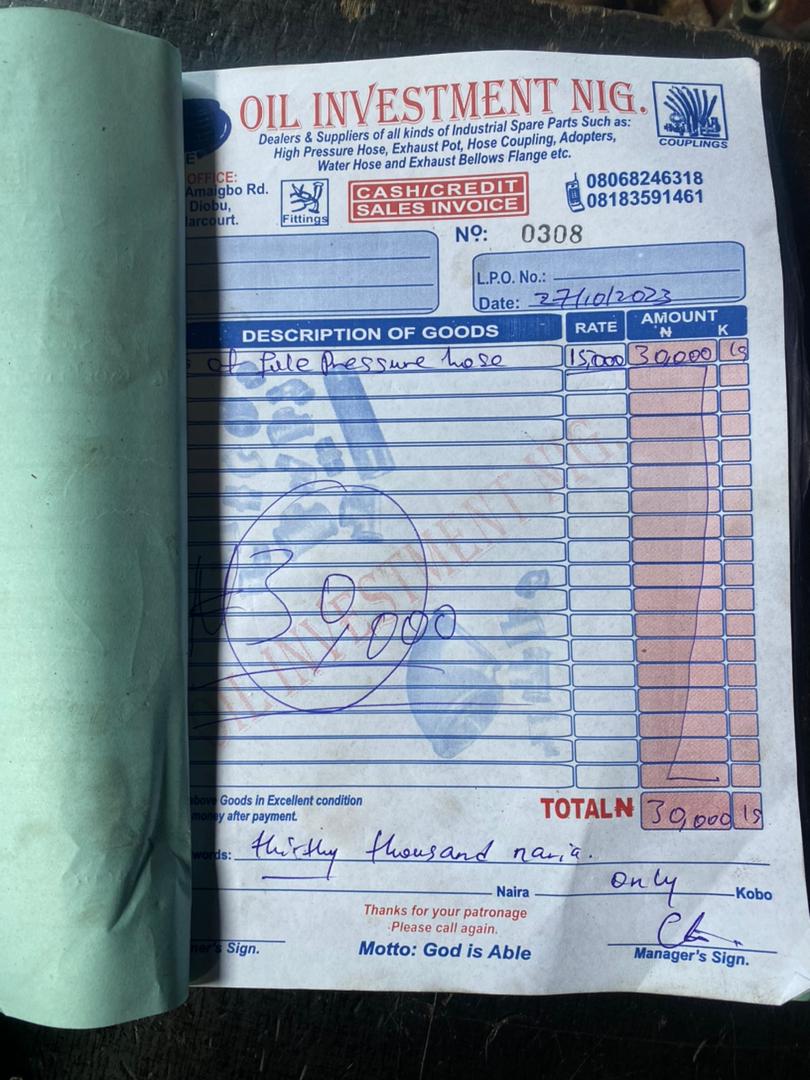 OIL INVESTMENT NIG.
Dealers & Suppliers of all kinds of Industrial Spare Parts Such as:
High Pressure Hose, Exhaust Pot, Hose Coupling, Adopters,
Water Hose and Exhaust Bellows Flange etc.
COUPLINGS
E
OFFICE:
Amaigbo Rd.
Diobu,
arcourt.
Fittings
CASH/CREDIT
SALES INVOICE
08068246318
08183591461
Nº: 0308
L.P.O. No.:
Date: 27/10/2023
DESCRIPTION OF GOODS RATE AMOUNT
₦ K
of Pressure hose 15,000 30,000
₦30,000
OIL INVESTMENT NIG
above Goods in Excellent condition
money after payment.
TOTAL ₦ 30,000
words: thirthy thousand naria.
Naira only Kobo
Thanks for your patronage
Please call again.
ner's Sign.
Motto: God is Able
Manager's Sign.